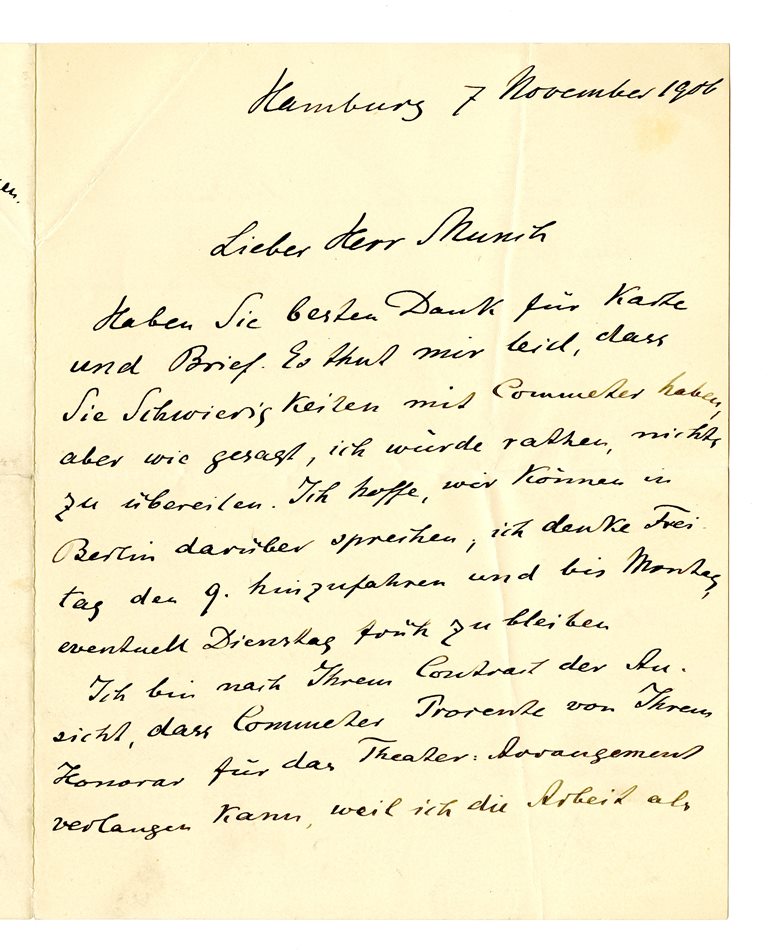 Hamburg 7 November 1906
Lieber Herr Munch
Haben Sie besten Dank für Karte
und Brief. Es thut mir leid, dass
Sie Schwierigkeiten mit Commeter haben,
aber wie gesagt, ich würde rathen, nichts
zu übereilen. Ich hoffe, wir können in
Berlin darüber sprechen, ich denke Frei-
tag den 9. hinzufahren und bis Montag,
eventuell Dienstag früh zu bleiben
Ich bin nach Ihrem Contract der An-
sicht, dass Commeter Procente von Ihrem
Honorar für das Theater-Arrangement
verlangen kann, weil ich die Arbeit als